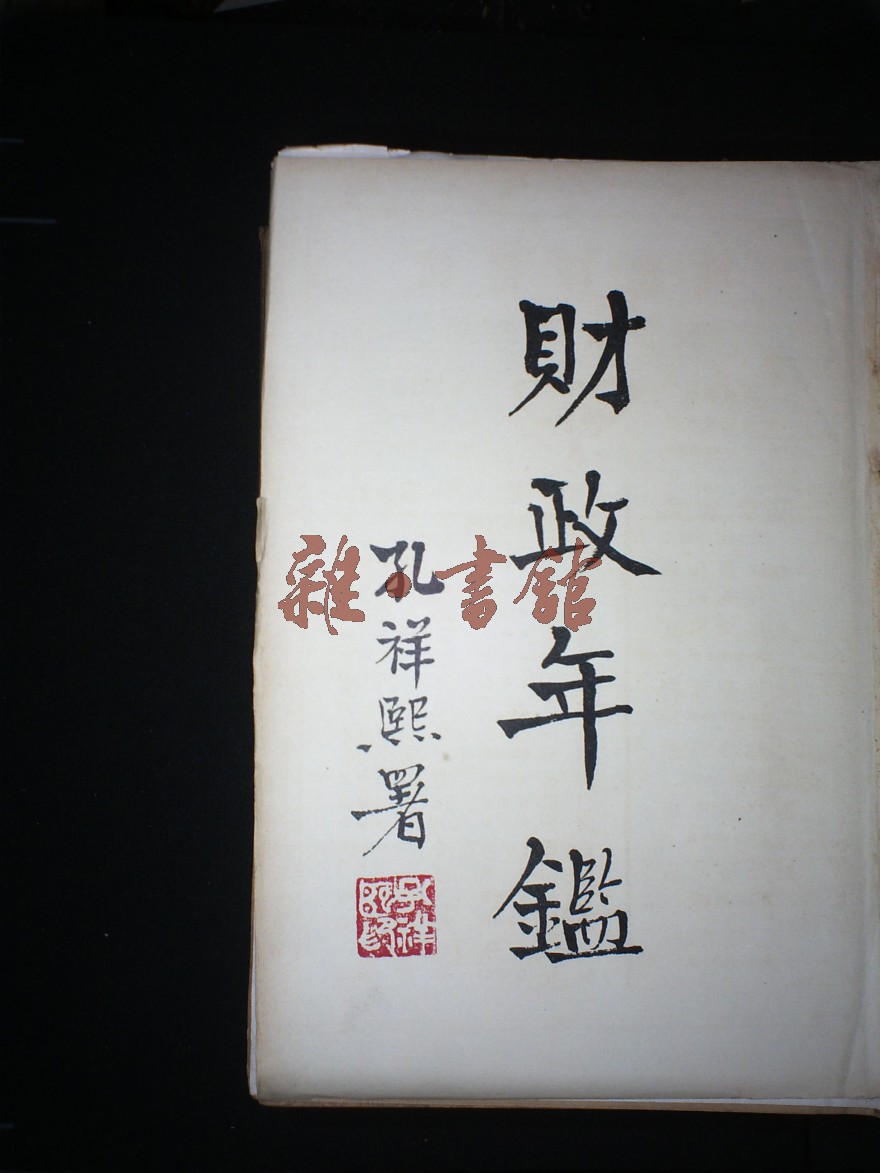 財政年鑑
孔祥熙署
孔祥熙印
雜·書館